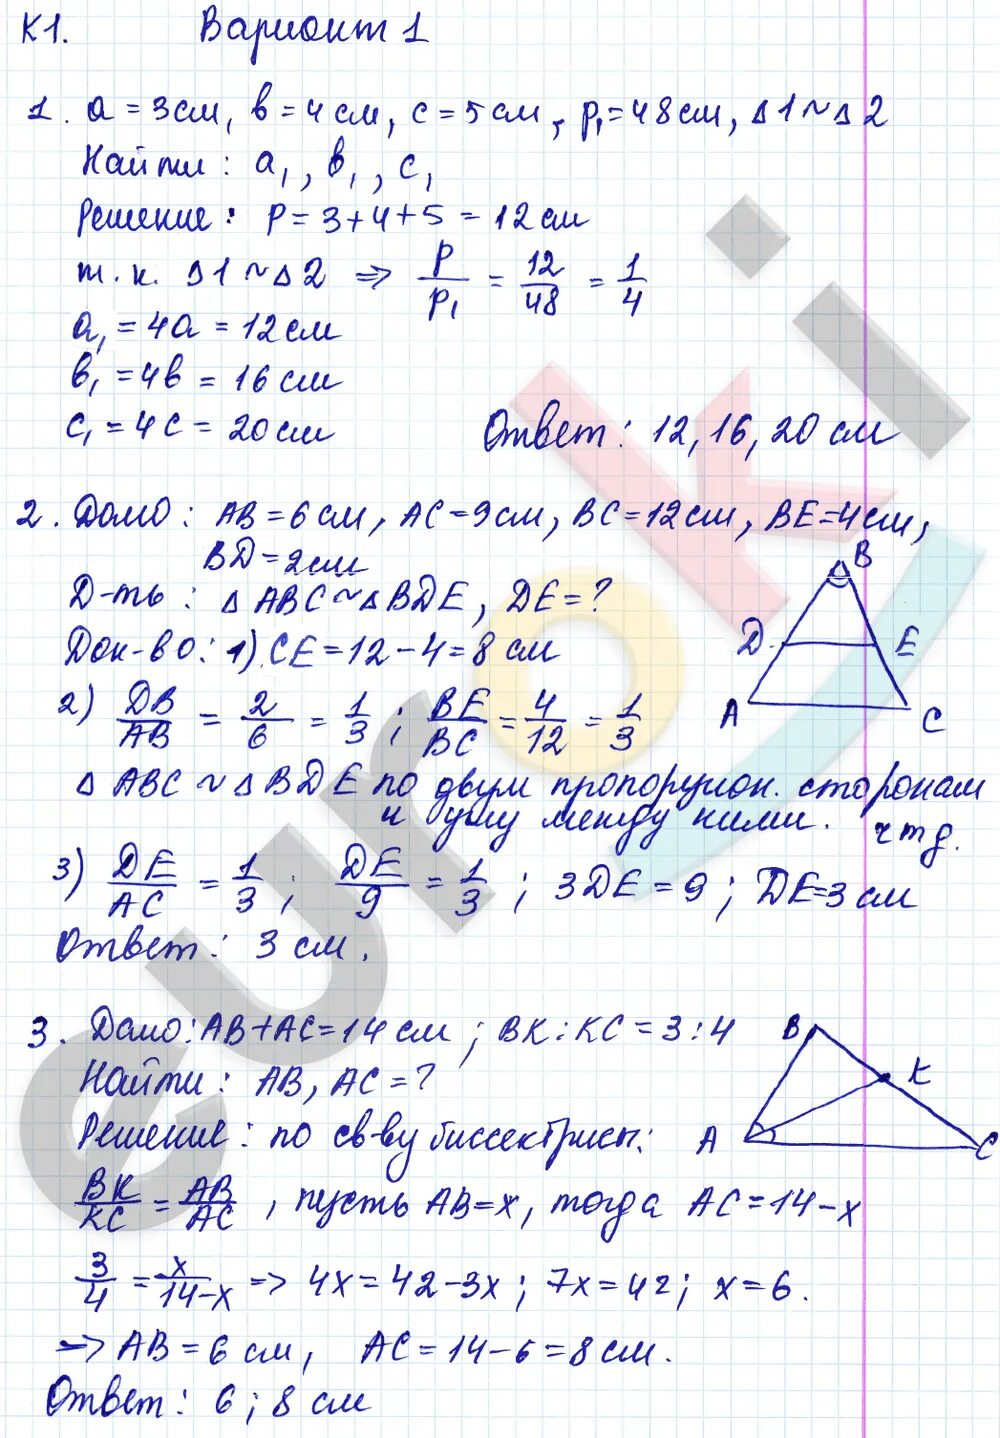 К1. Вариант 1
1. a = 3см, в = 4 см, c = 5 см, p₁ = 48 см, Δ1 ~ Δ2
Найти: a₁, в₁, c₁
Решение: P = 3 + 4 + 5 = 12 см
т.к. Δ1 ~ Δ2 => P/P₁ = 12/48 = 1/4
a₁ = 4a = 12 см
в₁ = 4в = 16 см
c₁ = 4c = 20 см Ответ: 12, 16, 20 см
2. Дано: AB = 6 см, AC = 9 см, BC = 12 см, BE = 4 см,
BD = 2 см
Д-ть: Δ ABC ~ Δ BDE, DE = ?
Док-во: 1) CE = 12 - 4 = 8 см
2) DB/AB = 2/6 = 1/3; BE/BC = 4/12 = 1/3
Δ ABC ~ Δ BDE по двум пропорцион. сторонам
и углу между ними. чтд.
3) DE/AC = 1/3; DE/9 = 1/3; 3DE = 9; DE = 3 см
Ответ: 3 см.
B
D E
A C
3. Дано: AB + AC = 14 см; BK : KC = 3 : 4
Найти: AB, AC = ?
Решение: по св-ву биссектрисы:
BK/KC = AB/AC, пусть AB = x, тогда AC = 14 - x
3/4 = x/14-x => 4x = 42 - 3x; 7x = 42; x = 6.
=> AB = 6 см, AC = 14 - 6 = 8 см.
Ответ: 6; 8 см
B
K
A C
euroki